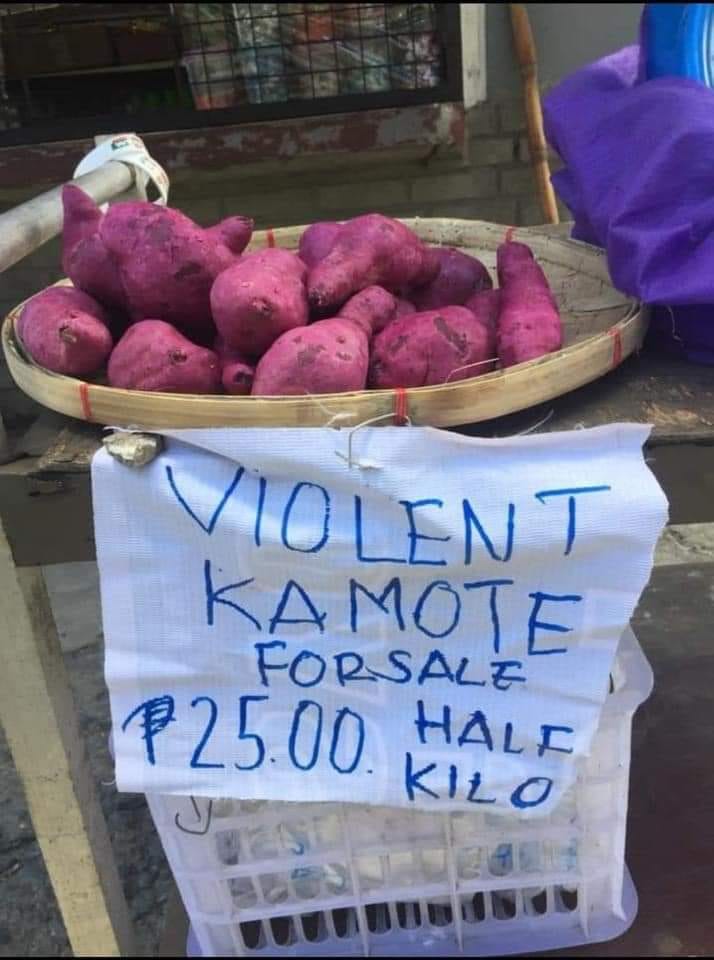 VIOLENT
KAMOTE
FOR SALE
₱25.00. HALF
KILO